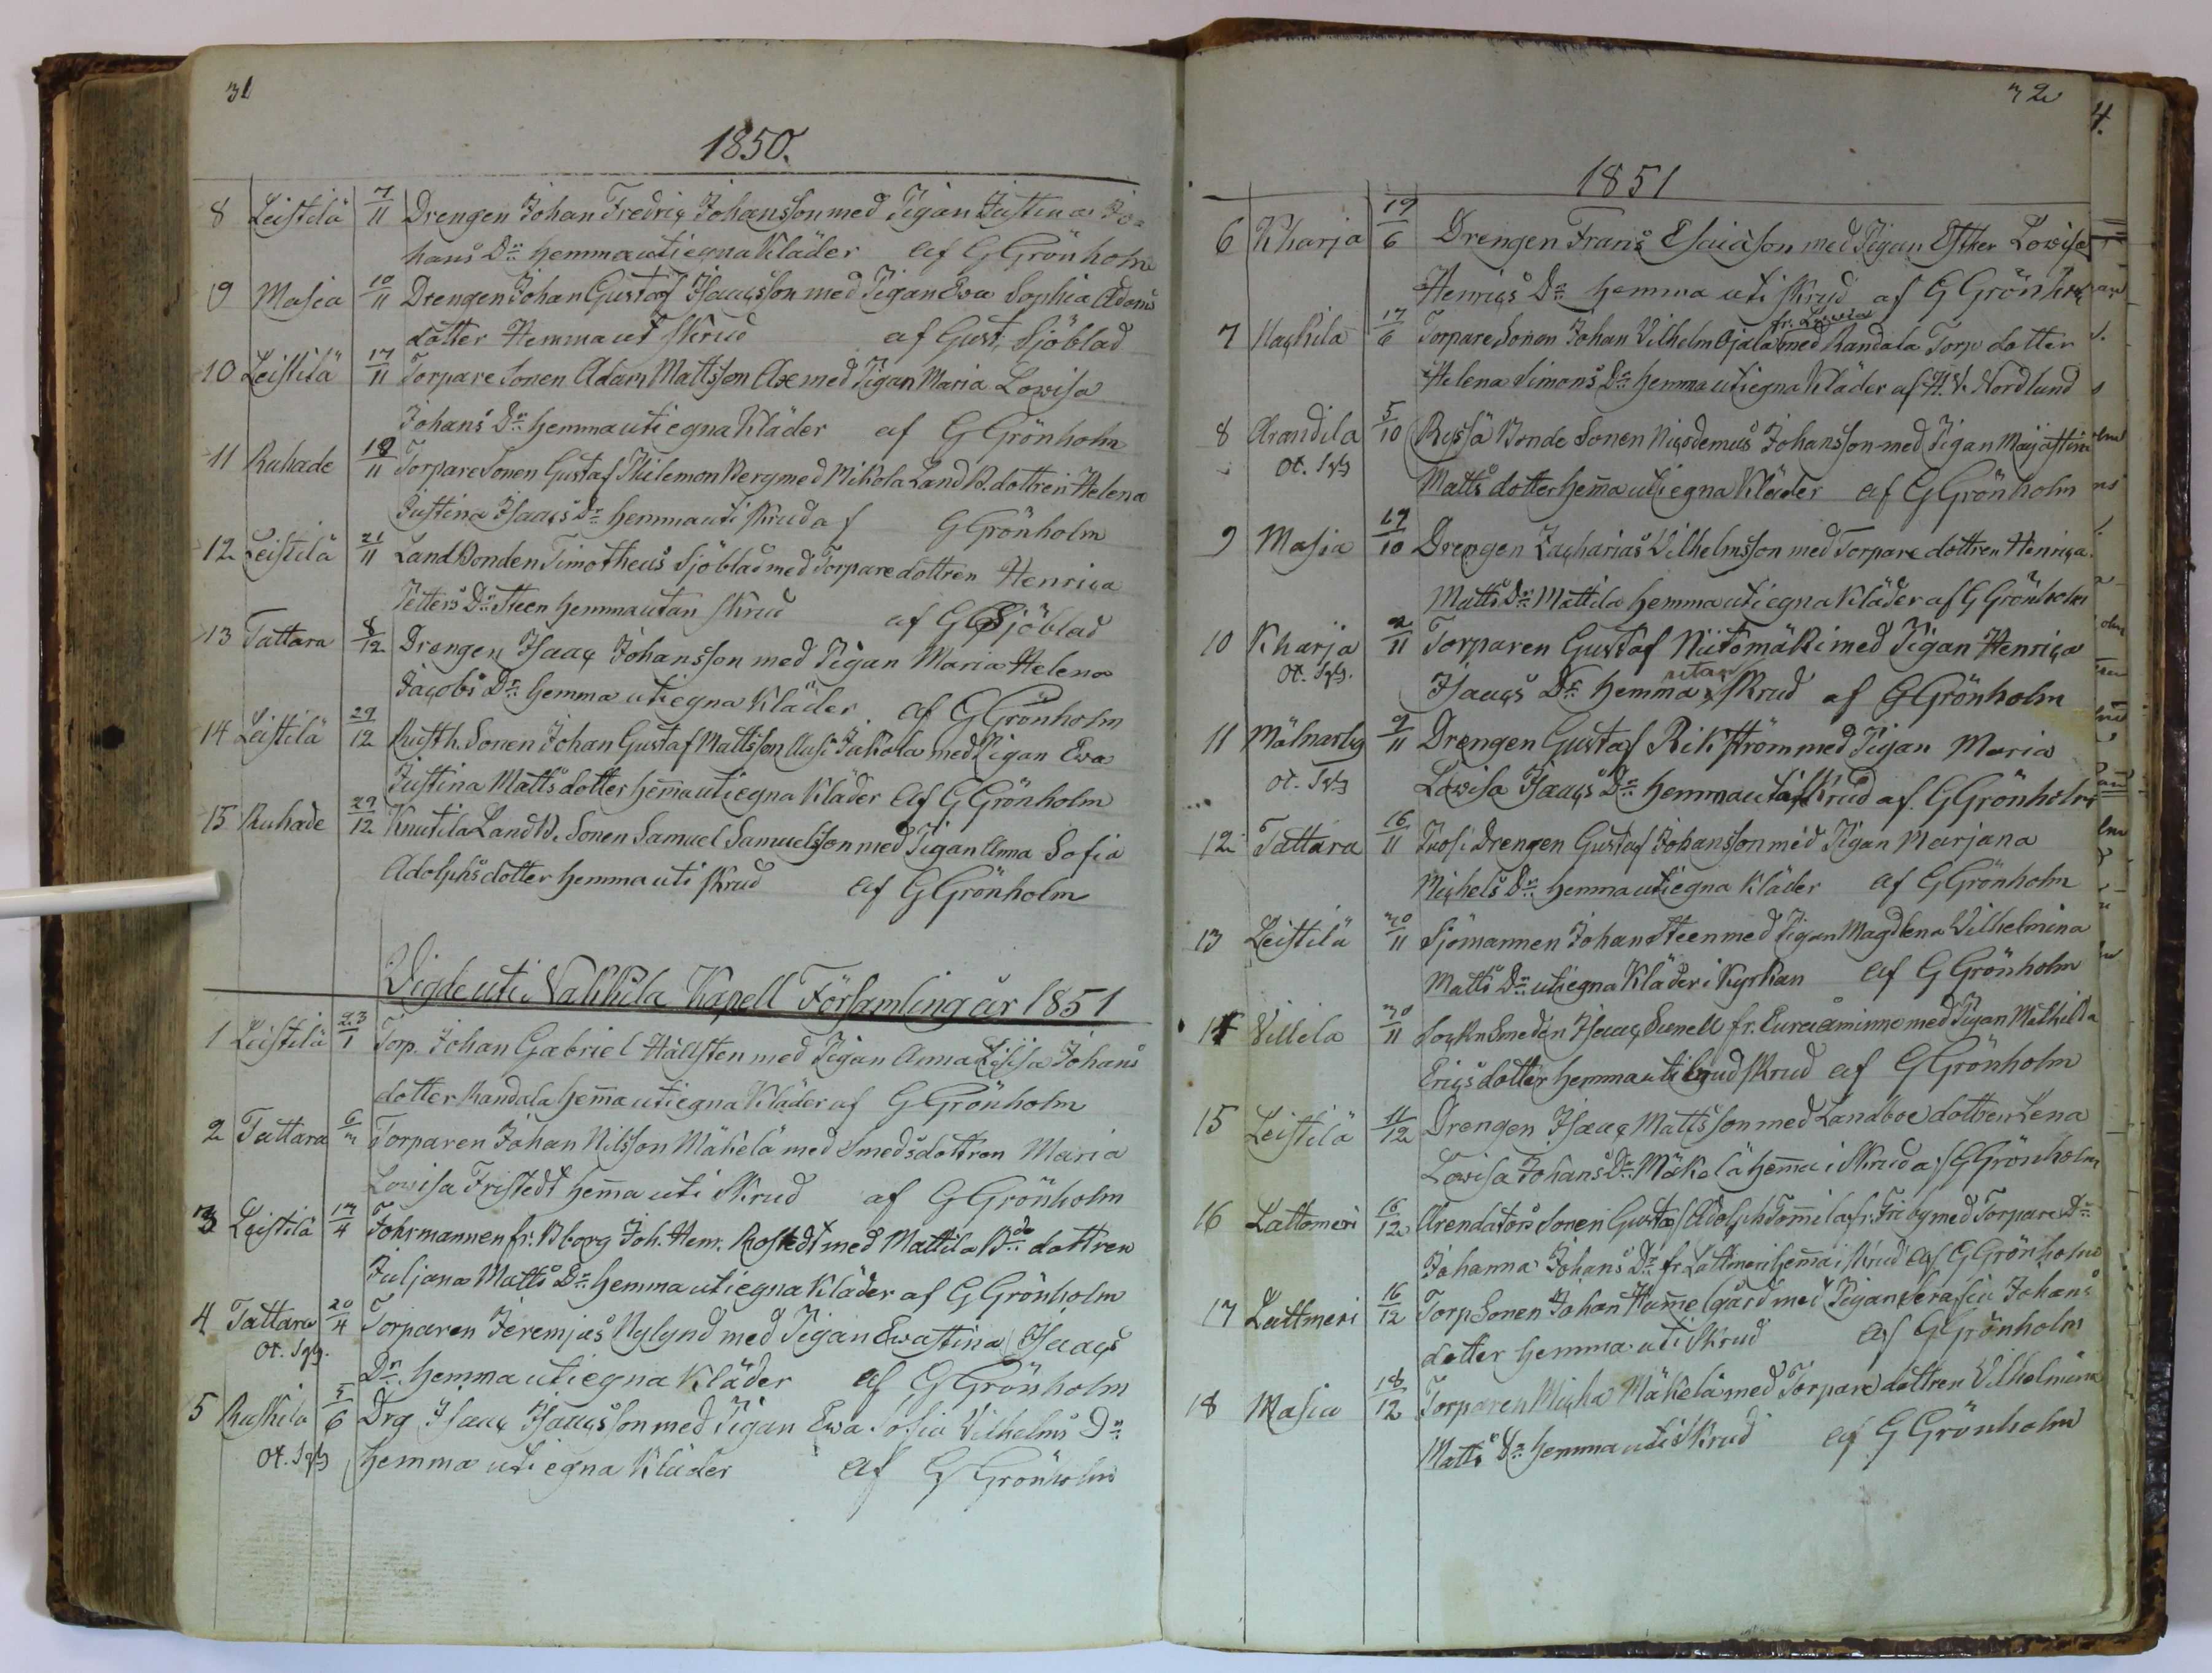 31
1850.
8 Leistilä 7/11 Drengen Johan Fredriç Johansson med Pigan Justina Jo=
hans Dr. hemma uti egna Kläder af G Grönholm
9 Masia 10/11 Drengen Johan Gustaf Isaaçsson med Pigan Eva Sophia Adams
dotter Hemma ut Skrud af Gust. Sjöblad
10 Leistilä 17/11 Torpare Sonen Adam Mattsson Axe med Pigan Maria Lowisa
Johans Dr. hemma uti egna Kläder af G Grönholm
11 Ruhade 18/11 Torpare Sonen Gustaf Philemon Berg med Mikola Land B. dottren Helena
Justina Isaaçs Dr. hemma uti Skrud af G Grönholm
12 Leistilä 21/11 Land Bonden Timotheus Sjöblad med Torpare dottren Henriça
Petters Dr. Steen hemma utan Skrud af G Sjöblad
13 Tattara 8/12 Drengen Isaaç Johansson med Pigan Maria Helena
Jaçobs Dr. hemma uti egna Kläder af G Grönholm
14 Leistilä 29/12 Rusth. Sonen Johan Gustaf Mattsson Ali Jakola med Pigan Ewa
Justina Matts dotter hem̅a uti egna Kläder af G Grönholm
15 Ruhade 29/12 Knutila Land B. Sonen Samuel Samuelsson med Pigan Anna Sofia
Adolphs dotter hemma uti Skrud af G Grönholm
Vigde uti Nakkila Kapell Församling år 1851
1 Leistilä 23/1 Torp. Johan Gabriel Hällsten med Pigan Anna Lisa Johans
dotter Randala hem̅a uti egna Kläder af G Grönholm
2 Tattara 6/3 Torparen Johan Nilsson Mäkelä med Smedsdottren Maria
Lowisa Fristedt hem̅a uti Skrud af G Grönholm
3 Leistilä 13/4 Forsmannen fr. Bborg Joh. Hen. Rostedt med Mattila Bde dottren
Juljana Matts Dr. hemma uti egna Kläder af G Grönholm
4 Tattara 20/4 Torparen Jeremjas Nylund med Pigan Ewastina Isaaçs
Ot.
Dr. hemma uti egna Kläder af G Grönholm
5 Ruskila 5/6 Drg Isaaç Isaaçsson med Pigan Ewa Sofia Vilhelms Dr.
Ot. hemma uti egna Kläder af G Grönholm
32
1851
6 Kharja 19/6 Drengen Frans Esaiason med Pigan Esther Lowisa
Henriçs Dr. hemma uti Skrud af G Grönholm
fr. Lavia
7 Haçkila 17/6 Torpare Sonen Johan Vilhelm Ojala med Randala Torp dotter
Helena Simons Dr. hemma uti egna Kläder af H. V. Nordlund
8 Arandila 5/10 Ryssä Bonde Sonen Niçodemus Johansson med Pigan Majastina
Ot. Matts dotter hem̅a uti egna Kläder af G Grönholm
9 Masia 19/10 Drengen Zaçharias Vilhelmsson med Torpare dottren Henriça
Matts Dr. Mattila hemma uti egna Kläder af G Grönholm
10 Kharja 2/11 Torparen Gustaf Niitomäki med Pigan Henriça
Ot. Isaaçs Dr. hemma utan Skrud af G Grönholm
11 Mälnarby 9/11 Drengen Gustaf Rikström med Pigan Maria
Ot. Lowisa Isaaçs Dr. hemma uti Skrud af G Grönholm
12 Tattara 16/11 Juosi Drengen Gustaf Johansson med Pigan Marjana
Miçhels Dr. hemma uti egna Kläder af G Grönholm
13 Leistilä 30/11 Sjömannen Johan Steen med Pigan Magdlena Vilhelmina
Matts Dr. uti egna Kläder i Kyrkan af G Grönholm
14 Villila 30/11 Soçkn Smeden Isaaç Sunell fr. Euraåminne med Pigan Mathilda
Eriçs dotter hemma uti brudskrud af G Grönholm
15 Leistilä 11/12 Drengen Isaaç Mattsson med Landboe dottren Lena
Lowisa Johans Dr. Mäkelä hem̅a i Skrud af G Grönholm
16 Lattomeri 16/12 Arendators Sonen Gustaf Adolph Tom̅ila fr. Friby med Torpare Dr.
Johanna Johans Dr. fr Lattmeri hem̅a i Skrud af G Grönholm
17 Lattmeri 16/12 Torp Sonen Johan Ham̅elgård med Pigan Serafia Johans
dotter hemma uti Skrud af G Grönholm
18 Masia 18/12 Torparen Miçha Mäkelä med Torpare dottren Vilhelmina
Matts Dr. hemma uti Skrud af G Grönholm